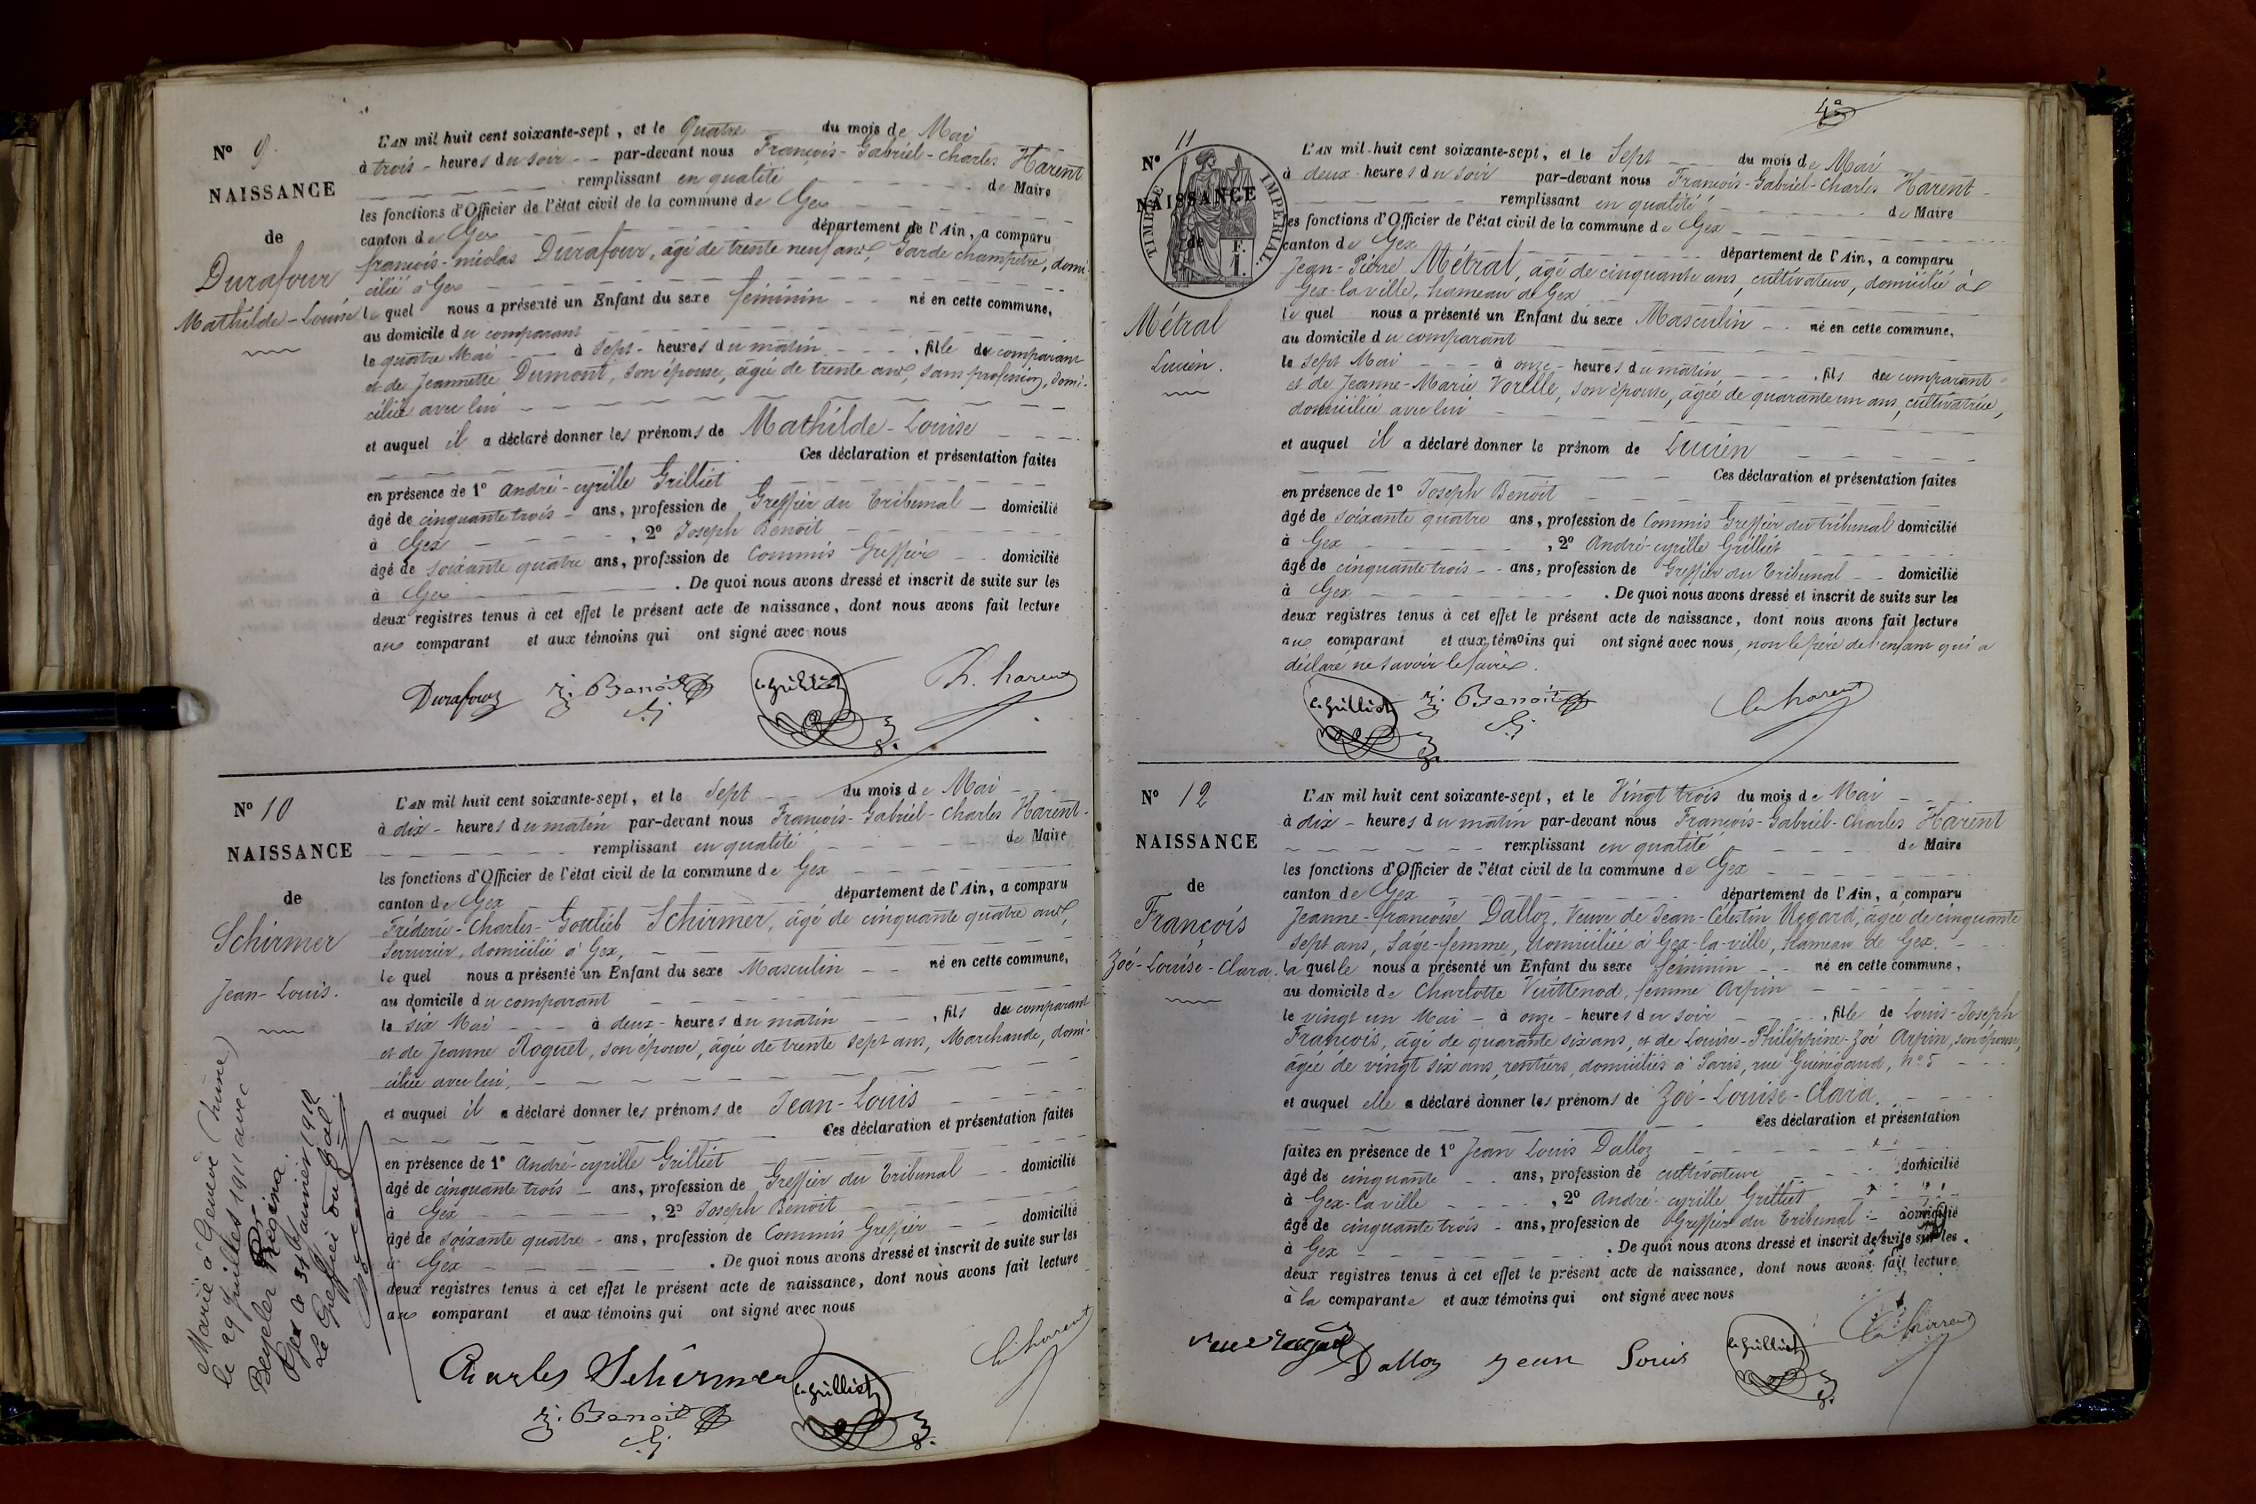 N° 9
NAISSANCE
de
Durafour
Mathilde-Louise
L'AN mil huit cent soixante-sept, et le Quatre du mois de Mai
à trois heures du soir par-devant nous François-Gabriel-Charles Harent
remplissant en qualité de Maire
les fonctions d'Officier de l'état civil de la commune de Gex
canton de Gex département de l'Ain, a comparu
françois-nicolas Durafour, âgé de trente neuf ans, Garde champêtre, domi-
cilié à Gex
le quel nous a présenté un Enfant du sexe féminin né en cette commune,
au domicile du comparant
le quatre Mai à sept heures du matin, fille du comparant
et de Jeannette Dumont, son épouse, âgée de trente ans, sans profession, domi-
ciliée avec lui
et auquel il a déclaré donner les prénoms de Mathilde-Louise
Ces déclaration et présentation faites
en présence de 1° André-cyrille Grilliet
âgé de cinquante trois ans, profession de Greffier du Tribunal domicilié
à Gex, 2° Joseph Benoit
âgé de soixante quatre ans, profession de Commis Greffier domicilié
à Gex. De quoi nous avons dressé et inscrit de suite sur les
deux registres tenus à cet effet le présent acte de naissance, dont nous avons fait lecture
au comparant et aux témoins qui ont signé avec nous
Durafour J. Benoit Grilliet Ch. harent
N° 10
NAISSANCE
de
Schirmer
Jean-Louis.
Marié à Genève (Suisse)
le 29 Juillet 1911 avec
Beyeler Rosina.
Gex ce 31 Janvier 1912
Le Greffier du Tribal
L'AN mil huit cent soixante-sept, et le Sept du mois de Mai
à dix heures du matin par-devant nous François-Gabriel-Charles Harent
remplissant en qualité de Maire
les fonctions d'Officier de l'état civil de la commune de Gex
canton de Gex département de l'Ain, a comparu
Fréderic-Charles-Gottlieb Schirmer, âgé de cinquante quatre ans,
Serrurier, domicilié à Gex,
le quel nous a présenté un Enfant du sexe Masculin né en cette commune,
au domicile du comparant
le six Mai à deux heures du matin, fils du comparant
et de Jeanne Roguet, son épouse, âgée de trente sept ans, Marchande, domi-
ciliée avec lui,
et auquel il a déclaré donner les prénoms de Jean-Louis
Ces déclaration et présentation faites
en présence de 1° André-cyrille Grilliet
âgé de cinquante trois ans, profession de Greffier du Tribunal domicilié
à Gex, 2° Joseph Benoit
âgé de soixante quatre ans, profession de Commis Greffier domicilié
à Gex. De quoi nous avons dressé et inscrit de suite sur les
deux registres tenus à cet effet le présent acte de naissance, dont nous avons fait lecture
au comparant et aux témoins qui ont signé avec nous
Charles Schirmer Grilliet Ch harent
J. Benoit
4°
N° 11
NAISSANCE
de
TIMBRE IMPERIAL.
Métral
Lucien.
L'AN mil huit cent soixante-sept, et le Sept du mois de Mai
à deux heures du soir par-devant nous François-Gabriel-Charles Harent
remplissant en qualité de Maire
les fonctions d'Officier de l'état civil de la commune de Gex
canton de Gex département de l'Ain, a comparu
Jean-Pierre Métral, âgé de cinquante ans, cultivateur, domicilié à
Gex-la-ville, hameau de Gex
le quel nous a présenté un Enfant du sexe Masculin né en cette commune,
au domicile du comparant
le sept Mai à onze heures du matin, fils du comparant
et de Jeanne-Marie Vorelle, son épouse, âgée de quarante un ans, cultivatrice,
domiciliée avec lui
et auquel il a déclaré donner le prénom de Lucien
Ces déclaration et présentation faites
en présence de 1° Joseph Benoit
âgé de soixante quatre ans, profession de Commis Greffier du tribunal domicilié
à Gex, 2° André-cyrille Grilliet
âgé de cinquante trois ans, profession de Greffier du Tribunal domicilié
à Gex. De quoi nous avons dressé et inscrit de suite sur les
deux registres tenus à cet effet le présent acte de naissance, dont nous avons fait lecture
au comparant et aux témoins qui ont signé avec nous, non le père de l'enfant qui a
déclaré ne savoir le faire.
Grilliet J. Benoit Ch harent
N° 12
NAISSANCE
de
François
Zoé-Louise-Clara.
L'AN mil huit cent soixante-sept, et le Vingt trois du mois de Mai
à dix heures du matin par-devant nous François-Gabriel-Charles Harent
remplissant en qualité de Maire
les fonctions d'Officier de l'état civil de la commune de Gex
canton de Gex département de l'Ain, a comparu
Jeanne-françoise Dalloz, Veuve de Jean-Célestin Regard, âgée de cinquante
sept ans, Sage-femme, domiciliée à Gex-la-ville, hameau de Gex.
la quelle nous a présenté un Enfant du sexe féminin né en cette commune,
au domicile de Charlotte Vuittenod, femme Arpin
le vingt un Mai à onze heures du soir, fille de Louis-Joseph
François, âgé de quarante six ans, et de Louise-Philippine-Zoé Arpin, son épouse,
âgée de vingt six ans, rentiers, domiciliés à Paris, rue Guénégaud, N° 5
et auquel elle a déclaré donner les prénoms de Zoé-Louise-Clara.
Ces déclaration et présentation
faites en présence de 1° Jean Louis Dalloz
âgé de cinquante ans, profession de cultivateur domicilié
à Gex-la-ville, 2° André-cyrille Grilliet
âgé de cinquante trois ans, profession de Greffier du Tribunal domicilié
à Gex. De quoi nous avons dressé et inscrit de suite sur les
deux registres tenus à cet effet le présent acte de naissance, dont nous avons fait lecture
à la comparante et aux témoins qui ont signé avec nous
Dalloz jean Louis Grilliet Ch harent